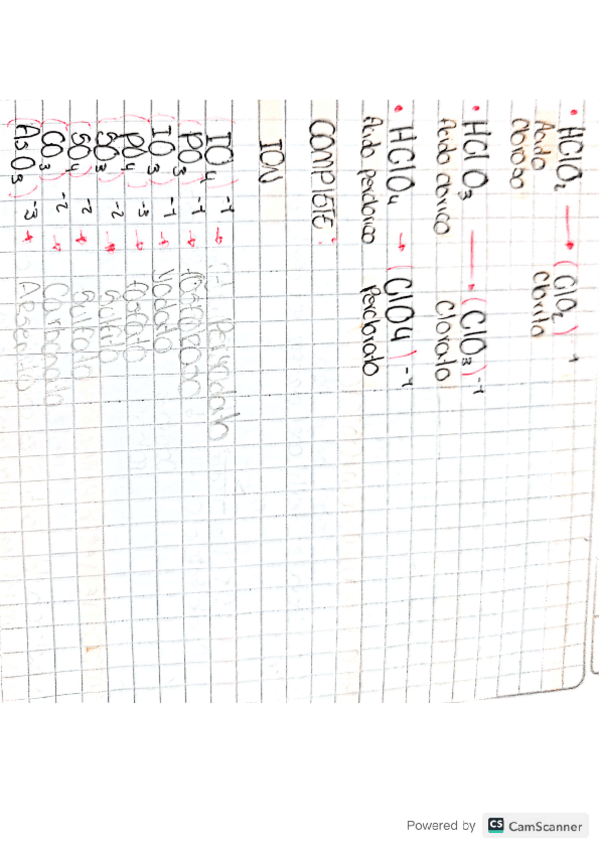 • HClO₂ → (ClO₂)⁻¹
Ácido Clorito
Cloroso
• HClO₃ → (ClO₃)⁻¹
Acido clorico Clorato
• HClO₄ → (ClO4)⁻¹
Acido perclorico Perclorato
COMPLETE:
ION
(IO₄)⁻¹ → Peryodato
(PO₃)⁻¹ →
(IO₃)⁻¹ → Yodato
(PO₄)⁻³ → fosfato
(SO₃)⁻² → Sulfito
(SO₄)⁻² → Sulfato
(CO₃)⁻² → Carbonato
(AsO₃)⁻³ → Arsenito
Powered by CS CamScanner